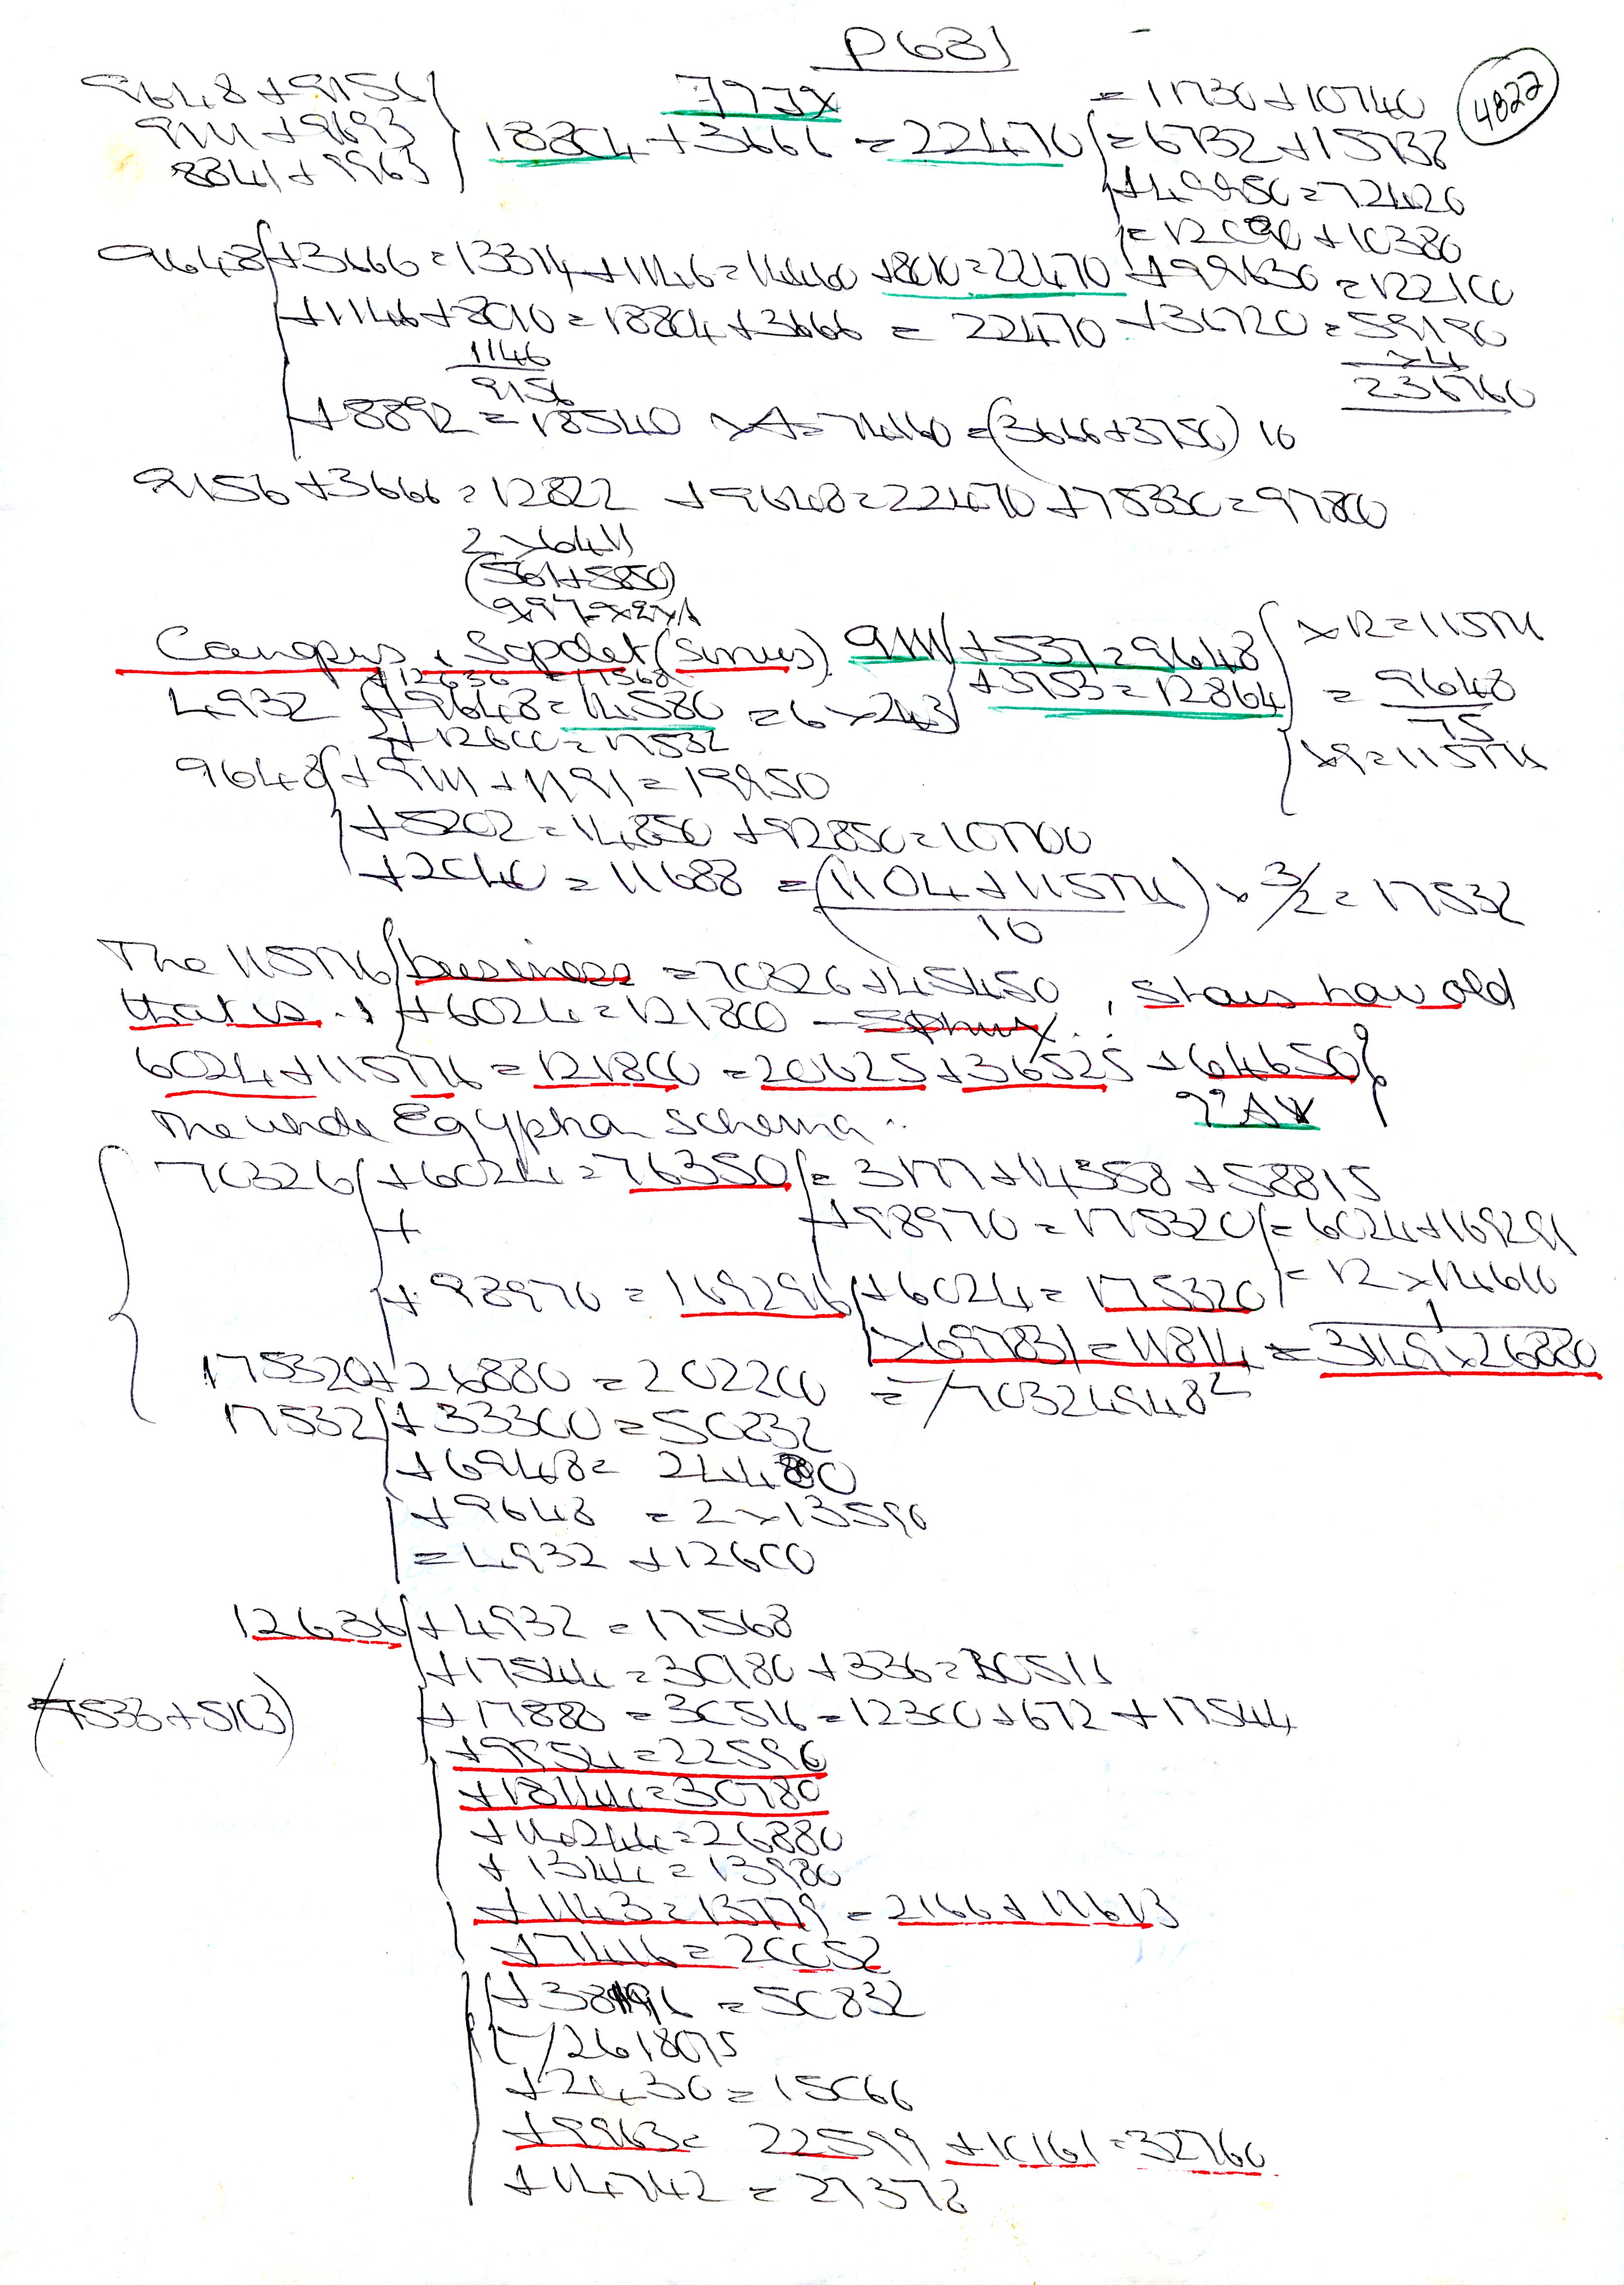 P681
4822
9648 + 9156
9111 + 9693
8841 + 9963
18804 + 3666 = 22470
= 11730 + 10740
= 6732 + 15738
+ 49950 = 72420
= 12090 + 10380
9648 + 3666 = 13314 + 1146 = 14460 + 8010 = 22470 + 99630 = 122100
+ 1146 + 8010 = 18804 + 3666 = 22470 + 36720 = 59190
1146
9156
x4
236760
+ 8892 = 18540 x 4 = 74160 = (3666 + 3750) 10
9156 + 3666 = 12822 + 9648 = 22470 + 75330 = 97800
2 x 6411
(561 + 5850)
Canopus & Sopdet (Sirius) 9111 + 537 = 9648
+ 3753 = 12864
x 12 = 115776
= 9648
75
x 9 = 115776
+ 12636 = 17568
4932 + 9648 = 14580 = 6 x 243
+ 12600 = 17532
9648 + 9111 + 1191 = 19950
+ 5202 = 14850 + 92850 = 107700
+ 2040 = 11688 = (1104 + 115776) x 3/2 = 17532
10
The 115776 business = 70326 + 45450, stars how old
that is .. + 6024 = 121800 –
6024 + 115776 = 121800 = 20625 + 36525 + 64650
The whole Egyptian schema ..
70326 + 6024 = 76350 = 3177 + 14358 + 58815
+
+ 98970 = 175320 = 6024 + 169296
+ 98970 = 169296 + 6024 = 175320 = 12 x 14610
175320 + 26880 = 202200
17532 + 33300 = 50832
+ 6948 = 24480
+ 9648 = 2 x 13590
= 4932 + 12600
12636 + 4932 = 17568
+ 17544 = 30180 + 336 = 30516
(7533 + 5103)
+ 17880 = 30516 = 12300 + 672 + 17544
+ 18144 = 30780
+ 14244 = 26880
+ 1344 = 13980
+ 1143 = 13779 = 2166 + 11613
+ 7416 = 20052
+ 38196 = 50832
+ 2430 = 15066
+ 9963 = 22599 + 10161 = 32760
+ 14742 = 27378